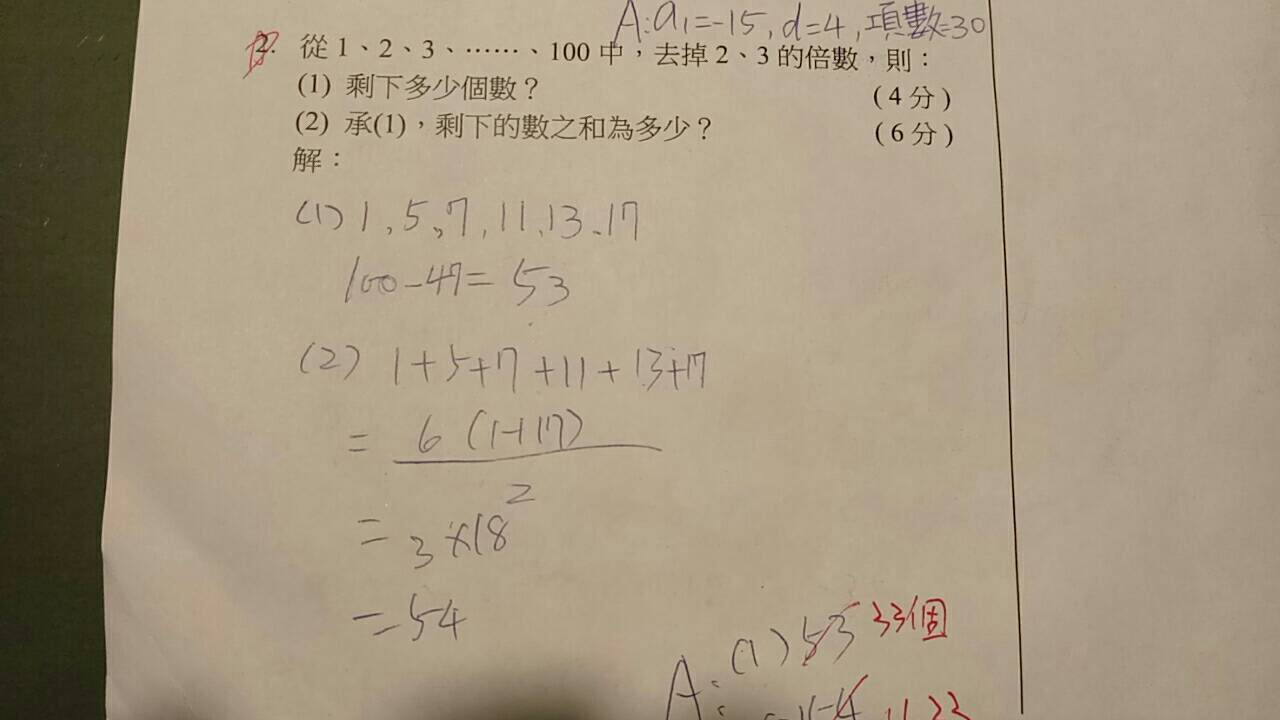 A: a₁=-15, d=4, 項數=30
2. 從 1、2、3、……、100 中，去掉 2、3 的倍數，則：
(1) 剩下多少個數？ (4分)
(2) 承(1)，剩下的數之和為多少？ (6分)
解：
(1) 1、5、7、11、13、17
100-47=53
(2) 1+5+7+11+13+17
= 6(1+17)
2
= 3×18
=54
A: (1) 53 33個